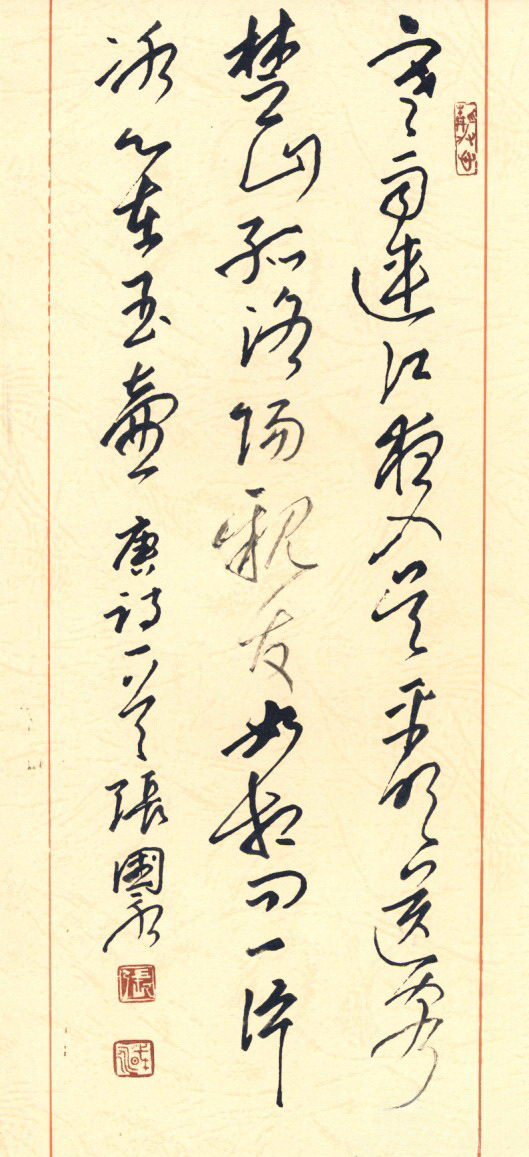 寒雨連江夜入吳平明送客
楚山孤洛陽親友如相問一片
冰心在玉壺 唐詩一首 張國永
張